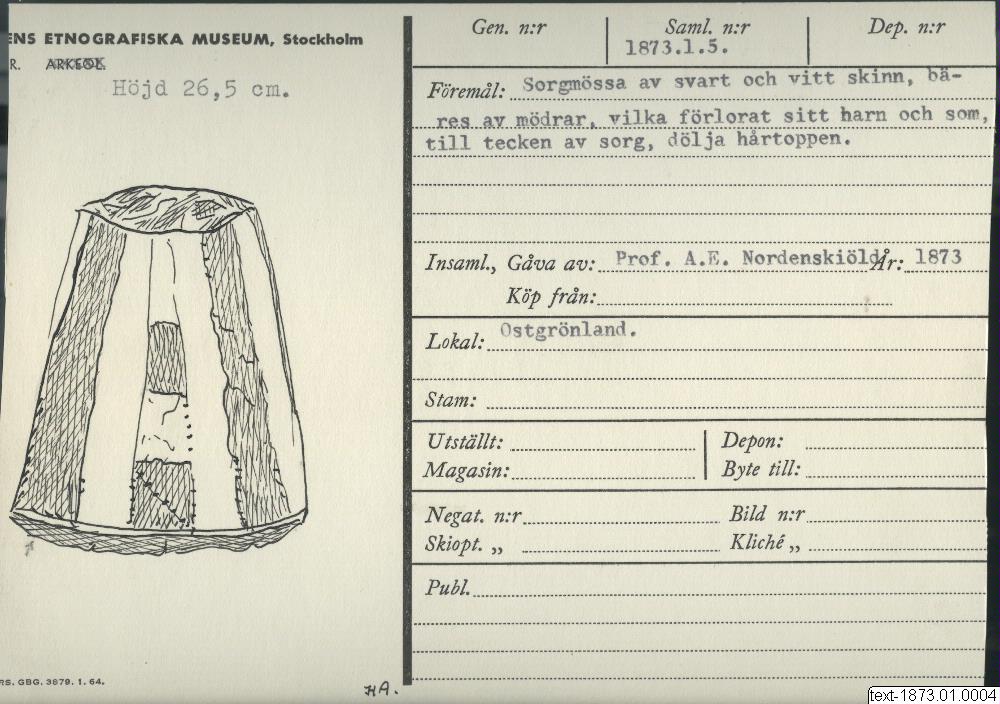 ENS ETNOGRAFISKA MUSEUM, Stockholm
R. ARKEOL.
Höjd 26,5 cm.
RS. GBG. 3879. 1. 64.
HA.
Gen. n:r
Saml. n:r
1873.1.5.
Dep. n:r
Föremål: Sorgmössa av svart och vitt skinn, bä-
res av mödrar, vilka förlorat sitt harn och som,
till tecken av sorg, dölja hårtoppen.
Insaml., Gåva av: Prof. A.E. Nordenskiöld År: 1873
Köp från:
Lokal: Ostgrönland.
Stam:
Utställt: Depon:
Magasin: Byte till:
Negat. n:r Bild n:r
Skiopt. „ Kliché „
Publ.
text-1873.01.0004